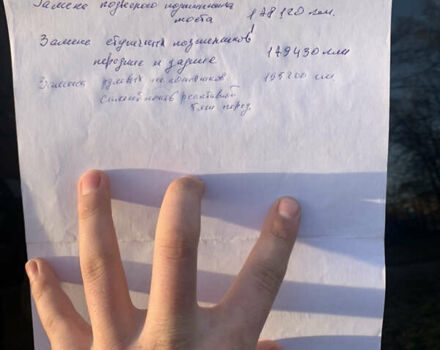 Замена подвесного подшипника
моста 178120 км.
Замена ступичных подшипников
передние и задние 179430 км
Замена рулевых наконечников 195200 км
сайлентблоков реактивной
тяги перед.